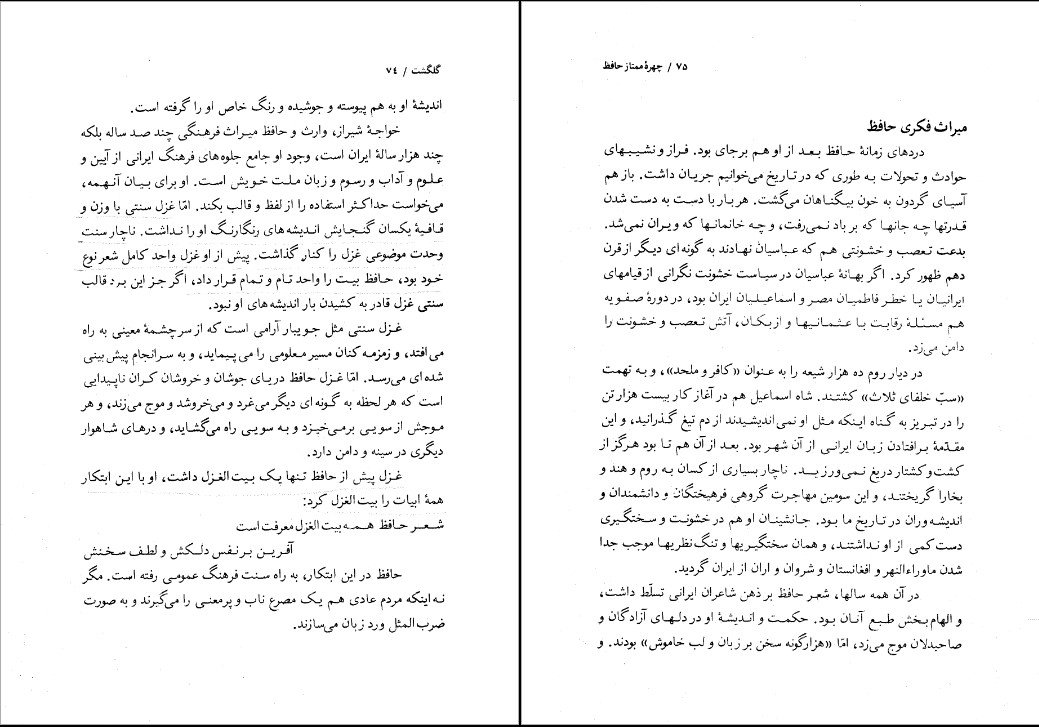 گلگشت / ۷۴
اندیشهٔ او به هم پیوسته و جوشیده و رنگ خاص او را گرفته است.
خواجهٔ شیراز، وارث و حافظ میراث فرهنگی چند صد ساله بلکه
چند هزار سالهٔ ایران است، وجود او جامع جلوه‌های فرهنگ ایرانی از آیین و
علوم و آداب و رسوم و زبان ملت خویش است. او برای بیان آنهمه،
می‌خواست حداکثر استفاده را از لفظ و قالب بکند. امّا غزل سنتی با وزن و
قافیهٔ یکسان گنجایش اندیشه‌های رنگارنگ او را نداشت. ناچار سنت
وحدت موضوعی غزل را کنار گذاشت. پیش از او غزل واحد کامل شعر نوع
خود بود، حافظ بیت را واحد تام و تمام قرار داد، اگر جز این بود قالب
سنتی غزل قادر به کشیدن بار اندیشه‌های او نبود.
غزل سنتی مثل جویبار آرامی است که از سرچشمهٔ معینی به راه
می‌افتد، و زمزمه کنان مسیر معلومی را می‌پیماید، و به سرانجام پیش‌بینی
شده‌ای می‌رسد. امّا غزل حافظ دریای جوشان و خروشان کران ناپیدایی
است که هر لحظه به گونه‌ای دیگر می‌غرد و می‌خروشد و موج می‌زند، و هر
موجش از سویی برمی‌خیزد و به سویی راه می‌گشاید، و درهای شاهوار
دیگری در سینه و دامن دارد.
غزل پیش از حافظ تنها یک بیت‌الغزل داشت، او با این ابتکار
همهٔ ابیات را بیت الغزل کرد:
شعر حافظ همه بیت الغزل معرفت است
آفرین بر نفس دلکش و لطف سخنش
حافظ در این ابتکار، به راه سنت فرهنگ عمومی رفته است. مگر
نه اینکه مردم عادی هم یک مصرع ناب و پرمعنی را می‌گیرند و به صورت
ضرب‌المثل ورد زبان می‌سازند.
۷۵ / چهرهٔ ممتاز حافظ
میراث فکری حافظ
دردهای زمانهٔ حافظ بعد از او هم برجای بود. فراز و نشیبهای
حوادث و تحولات به طوری که در تاریخ می‌خوانیم جریان داشت. باز هم
آسیای گردون به خون بیگناهان می‌گشت. هر بار با دست به دست شدن
قدرتها چه جانها که بر باد نمی‌رفت، و چه خانمانها که ویران نمی‌شد.
بدعت تعصب و خشونتی هم که عباسیان نهادند به گونه‌ای دیگر از قرن
دهم ظهور کرد. اگر بهانهٔ عباسیان در سیاست خشونت نگرانی از قیامهای
ایرانیان یا خطر فاطمیان مصر و اسماعیلیان ایران بود، در دورهٔ صفویه
هم مسئلهٔ رقابت با عثمانیها و ازبکان، آتش تعصب و خشونت را
دامن می‌زد.
در دیار روم ده هزار شیعه را به عنوان «کافر و ملحد»، و به تهمت
«سبّ خلفای ثلاث» کشتند. شاه اسماعیل هم در آغاز کار بیست هزار تن
را در تبریز به گناه اینکه مثل او نمی‌اندیشیدند از دم تیغ گذرانید، و این
مقدّمهٔ برافتادن زبان ایرانی از آن شهر بود. بعد از آن هم تا بود هرگز از
کشت و کشتار دریغ نمی‌ورزید. ناچار بسیاری از کسان به روم و هند و
بخارا گریختند، و این سومین مهاجرت گروهی فرهیختگان و دانشمندان و
اندیشه‌وران در تاریخ ما بود. جانشینان او هم در خشونت و سختگیری
دست کمی از او نداشتند، و همان سختگیریها و تنگ نظریها موجب جدا
شدن ماوراءالنهر و افغانستان و شروان و اران از ایران گردید.
در آن همه سالها، شعر حافظ بر ذهن شاعران ایرانی تسلّط داشت،
و الهام‌بخش طبع آنان بود. حکمت و اندیشهٔ او در دلهای آزادگان و
صاحبدلان موج می‌زد، امّا «هزارگونه سخن بر زبان و لب خاموش» بودند. و